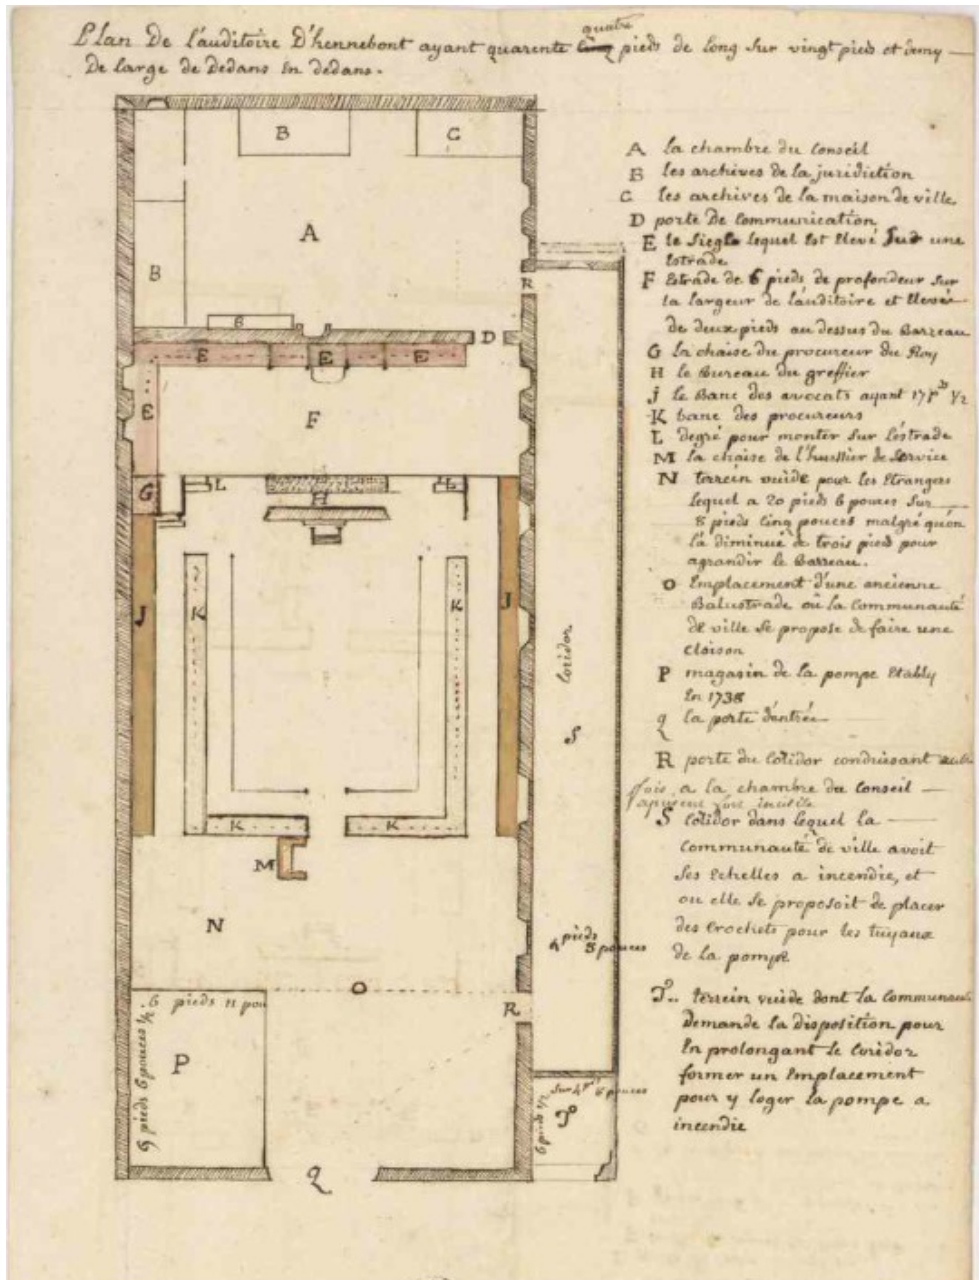 Plan De l'auditoire D'hennebont ayant quarente cinq quatre pieds de long sur vingt pieds et demy
De large de Dedans En dedans.
B
C
A
B
B
R
D
E E E
E
F
G
L
H
L
J
K
K
J
coridor
S
K
K
M
N
4 pieds 8 pouces
O
R
6 pieds 11 pou
9 pieds 6 pouces 1/2.
P
6 pieds 1/2 sur 4 pds 8 pouces
T
Q
A la chambre du Conseil
B les archives de la juridiction
C les archives de la maison de ville
D porte De Communication
E le Siege lequel Est Elevé sur une
Estrade
F Estrade de 6 pieds de profondeur sur
la largeur de l'auditoire et Elevée
de deux pieds au dessus du Barreau
G la chaise du procureur du Roy
H le Bureau du greffier
J le Banc des avocats ayant 17 pds 1/2
K banc des procureurs
L degré pour monter sur l'éstrade
M la chaise de l'huissier de Service
N terrein vuide pour les Etrangers
lequel a 20 pieds 6 pouces sur
8 pieds Cinq pouces malgré qu'on
l'a diminué de trois pieds pour
agrandir le Barreau.
O Emplacement d'une ancienne
Balustrade où la Communauté
de ville se propose de faire une
cloison
P magasin de la pompe Etably
En 1738
q la porte d'entrée
R porte du Coridor conduisant autre
fois a la chambre du Conseil
a present
S Coridor dans lequel la
Communauté de ville avoit
ses Echelles a incendie, et
ou elle se proposoit de placer
des Crochets pour les tuyaux
de la pompe
T.. terrein vuide dont la Communauté
Demande la disposition pour
En prolongant le Coridor
former un Emplacement
pour y loger la pompe a
incendie